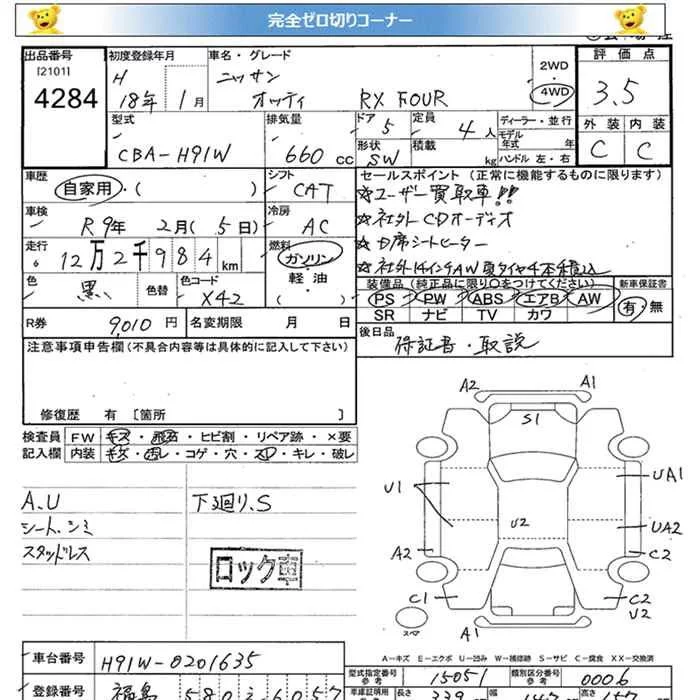 完全ゼロ切りコーナー
出品番号 初度登録年月 車名・グレード 2WD 評価点
[2101] H ニッサン 4WD
4284 18年 1月 オッティ RX FOUR 3.5
型式 排気量 ドア 5 定員 4人 ディーラー・並行 外装 内装
CBA-H91W 660 cc 形状 SW 積載 kg モデル年式 年 ハンドル 左・右 C C
車歴 シフト セールスポイント (正常に機能するものに限ります)
自家用・( ) CAT ☆ユーザー買取車!!
車検 冷房 ☆社外CDオーディオ
R9年 2月( 5日) AC ☆D席シートヒーター
走行 燃料 ☆社外14インチAW夏タイヤ4本積込
12万2千984km ガソリン
色 色替 色コード 軽油 装備品 (純正品に限り○をつけてください) 新車保証書
黒 X42 PS PW ABS エアB AW 有・無
SR ナビ TV カワ
R券 9,010 円 名変期限 月 日 後日品
保証書・取説
注意事項申告欄(不具合内容等は具体的に記入して下さい)
修復歴 有 [箇所 ]
検査員 FW キズ・飛石・ヒビ割・リペア跡・×要
記入欄 内装 キズ・汚レ・コゲ・穴・スレ・キレ・破レ
A.U 下廻り.S
シート.シミ
スタッドレス
ロック車
A2 A1
S1
U1 UA1
U2 UA2
A2 C2
C1 C2
U2
スペア A1
A−キズ E−エクボ U−凹み W−補修跡 S−サビ C−腐食 XX−交換済
車台番号 H91W-0201635
型式指定番号 参考 15051 類別区分番号 参考 0006
登録番号 福島 580